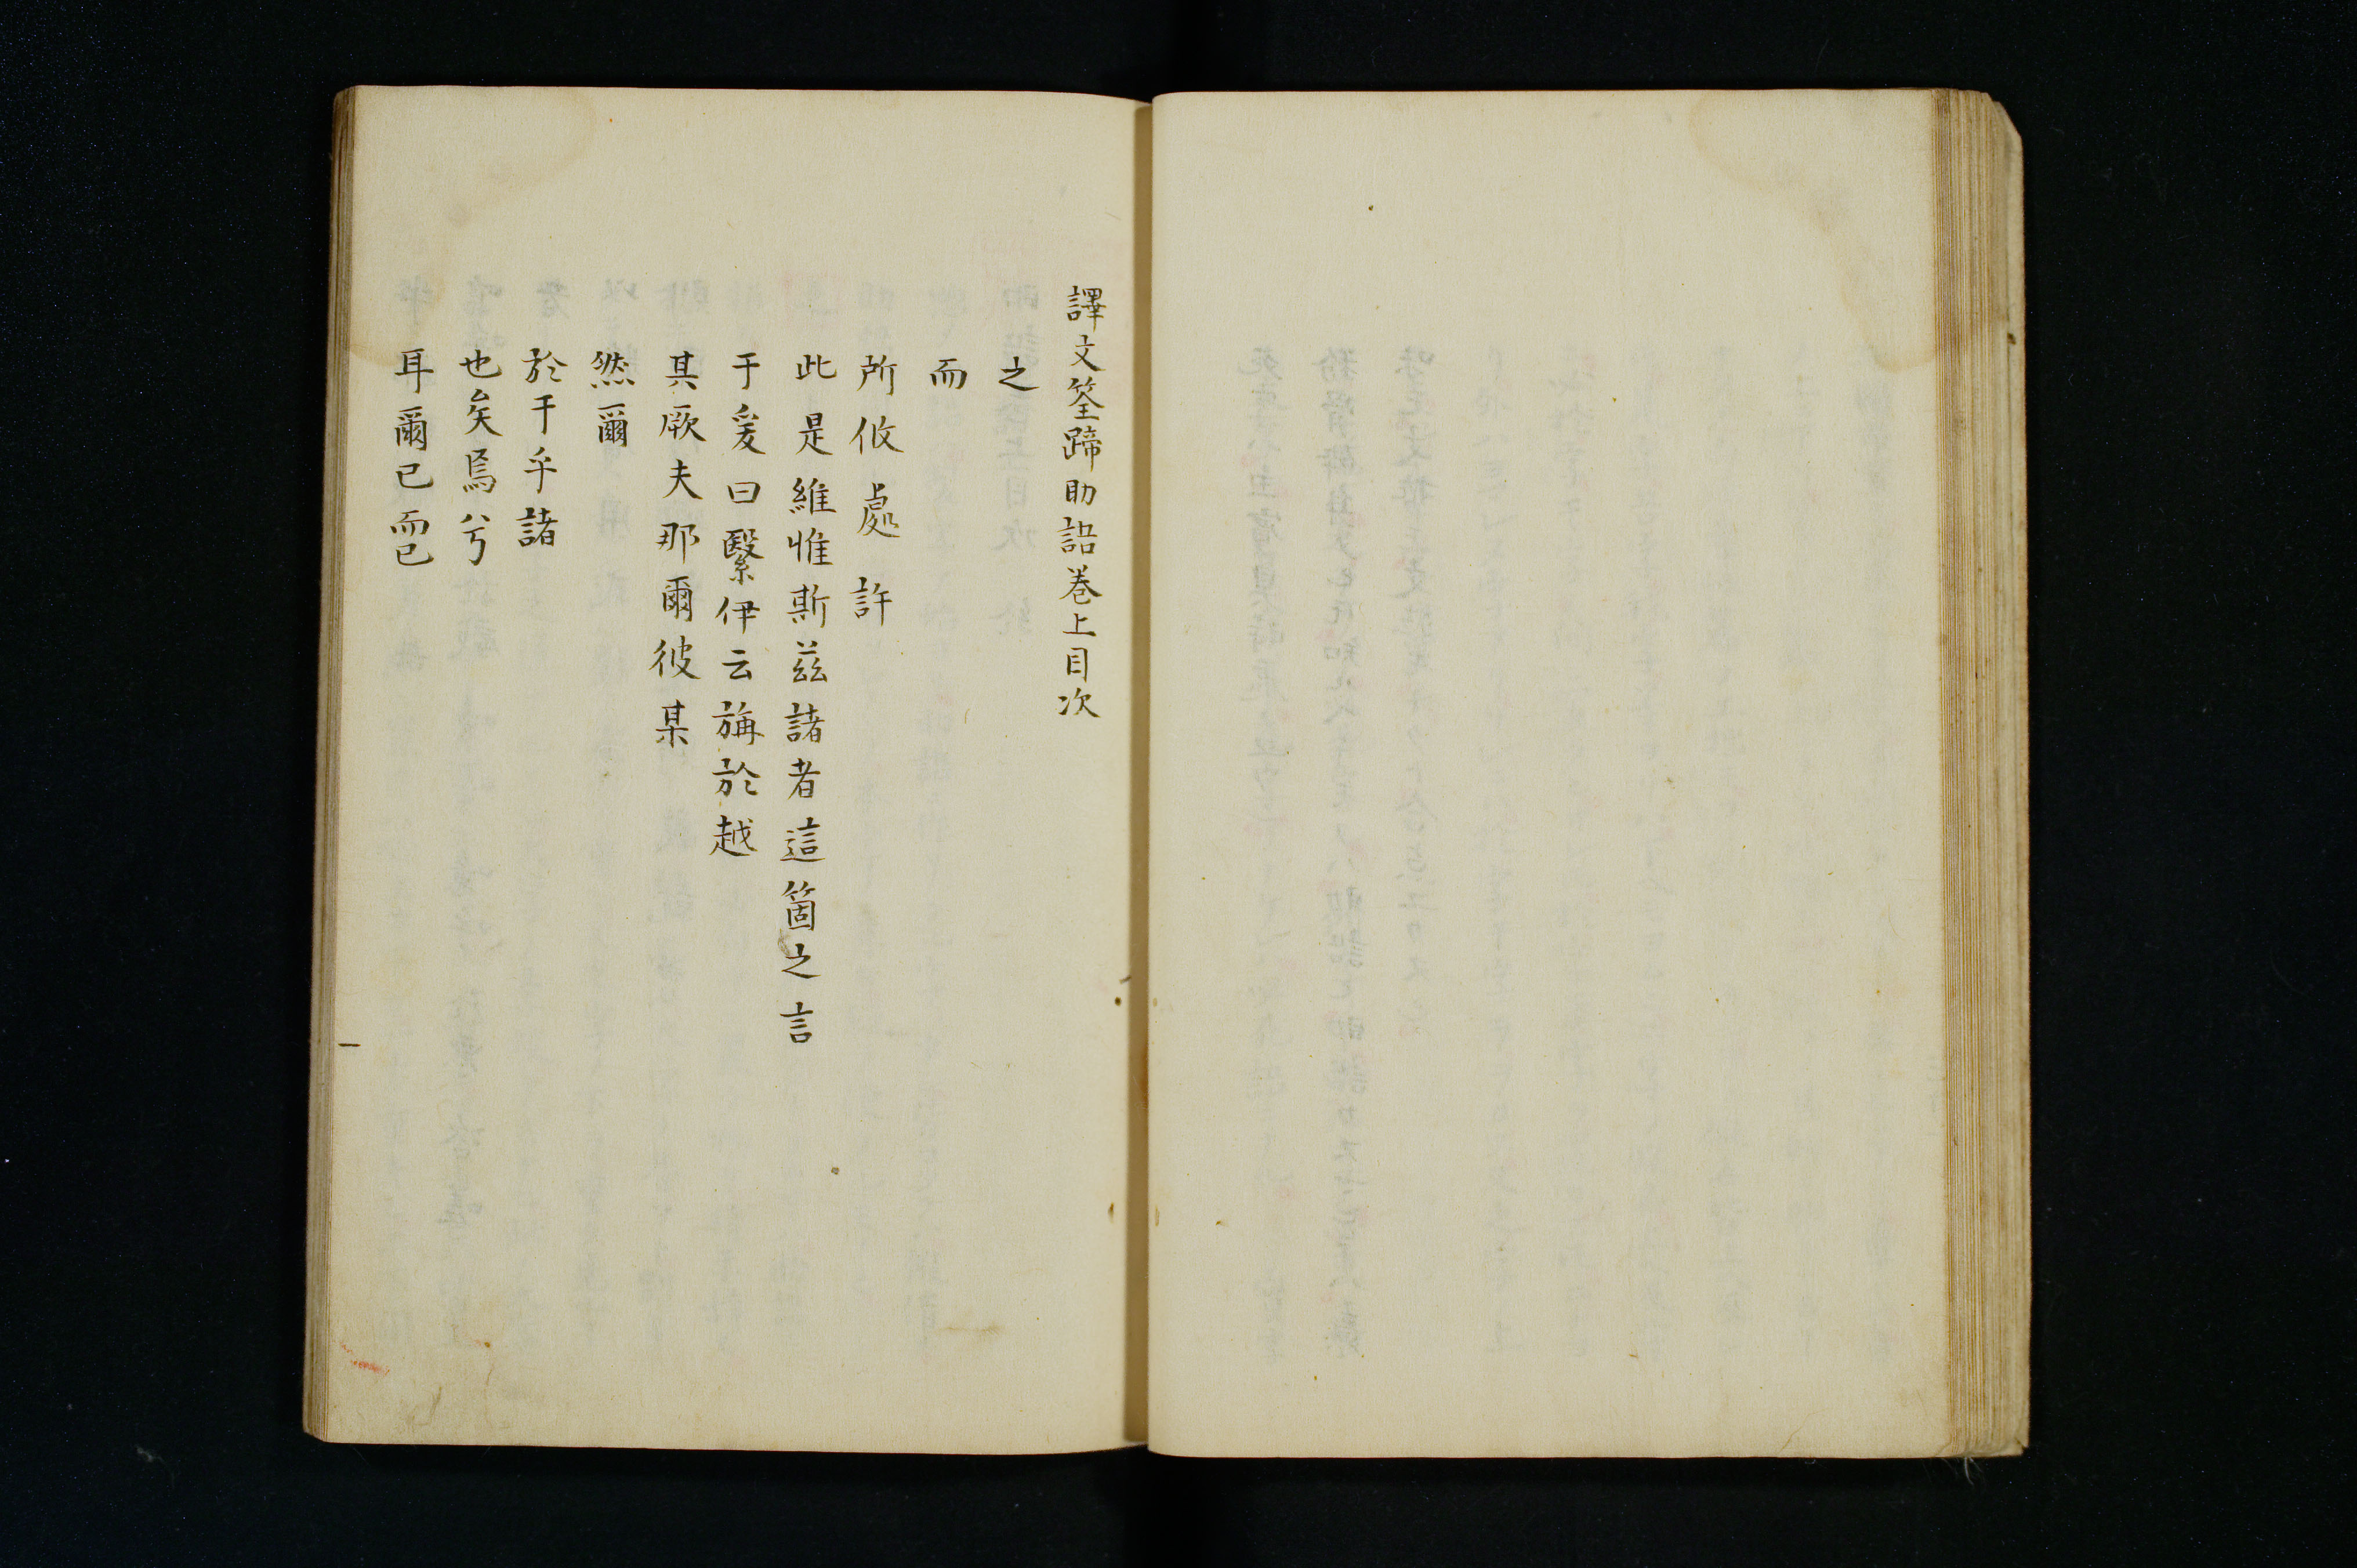 譯文筌蹄助語巻上目次
之
而
所攸處許
此是維惟斯茲諸者這箇之言
于爰曰繄伊云旃於越
其厥夫那爾彼某
然爾
於于乎諸
也矣焉兮
耳爾已而已